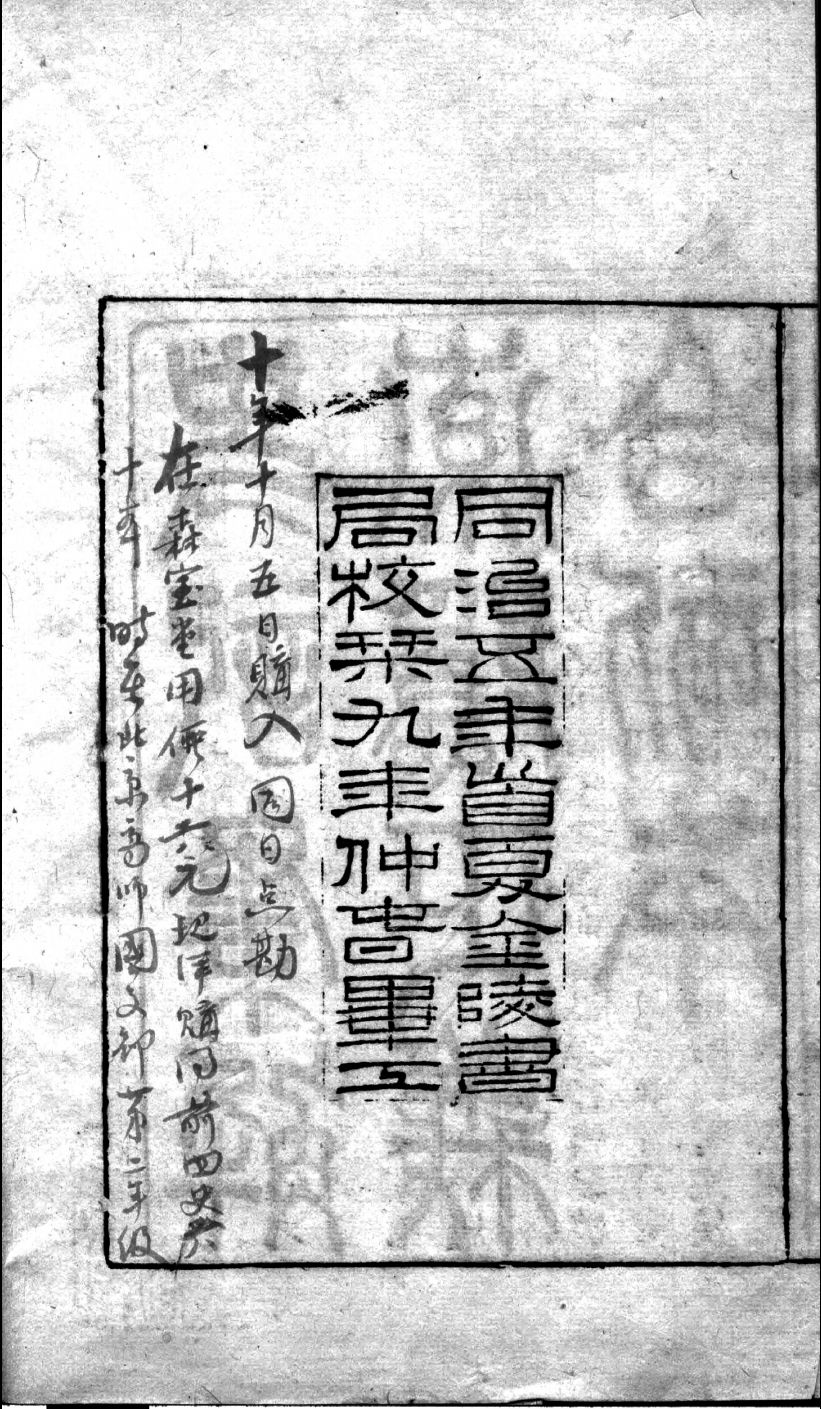 同治五年首夏金陵書
局校栞九年仲春畢工
十年十月五日購入 同日点勘
在森宝堂用価十六元現洋購得前四史共
十年 时在北京高师國文部第二年级